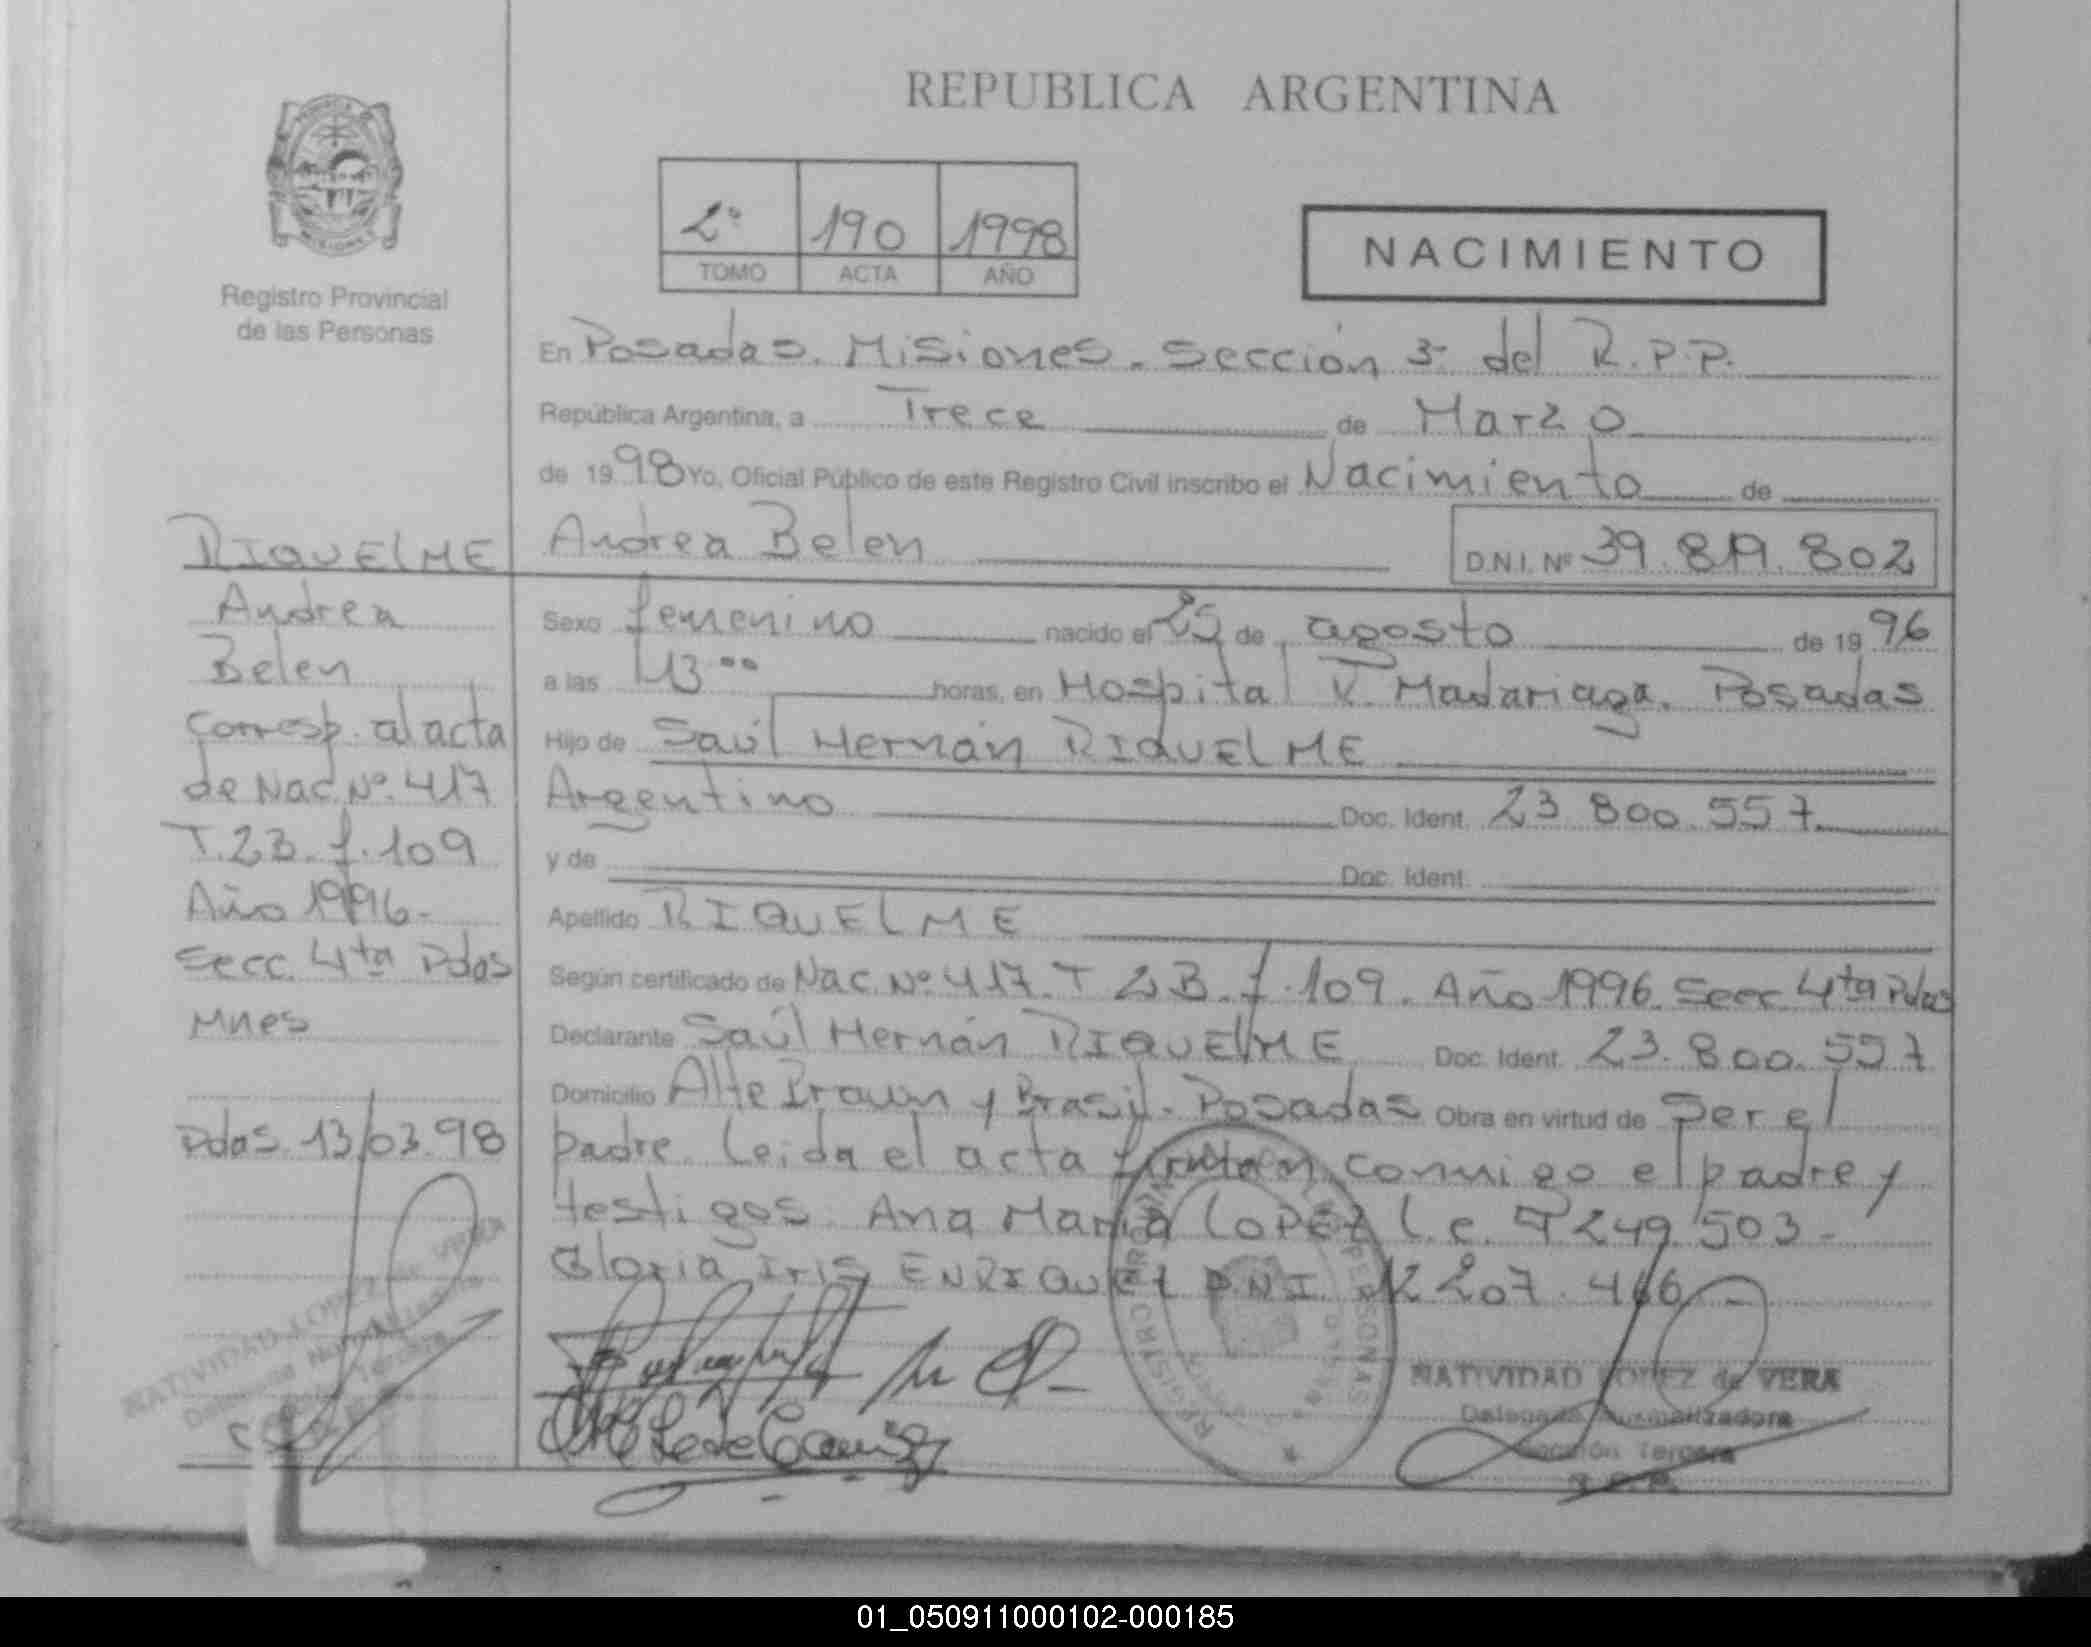 REPUBLICA ARGENTINA
2º 190 1998
TOMO ACTA AÑO
NACIMIENTO
Registro Provincial
de las Personas
En Posadas. Misiones. Sección 3ª del R.P.P.
República Argentina, a Trece de Marzo
de 1998 Yo, Oficial Público de este Registro Civil inscribo el Nacimiento de
Andrea Belen D.N.I. Nº 39.819.802
Sexo femenino nacido el 25 de agosto de 1996
a las horas, en Hospital R. Madariaga. Posadas
Hijo de Saúl Hernán RIQUELME
Argentino Doc. Ident. 23.800.557
y de Doc. Ident.
Apellido RIQUELME
Según certificado de Nac. Nº 417. T 2B. f. 109. Año 1996. Secc 4ta Pdas
Declarante Saúl Hernán RIQUELME Doc. Ident. 23.800.557
Domicilio Alte Brown y Brasil. Posadas Obra en virtud de Ser el
padre. Leida el acta firman conmigo el padre y
testigos. Ana Maria LOPEZ L.C. 249.503-
Gloria Iris ENRIQUEZ D.N.I. 207.466-
RIQUELME
Andrea
Belen
Corresp. al acta
de Nac. Nº. 417
T.2B. f. 109
Año 1996-
Secc. 4ta Pdas
Mnes
Pdas. 13/03.98
NATIVIDAD LOPEZ de VERA
Delegada Normalizadora
Sección Tercera
REGISTRO PROVINCIAL DE LAS PERSONAS
NATIVIDAD LOPEZ de VERA
Delegada Normalizadora
Sección Tercera
R.P.P.
01_050911000102-000185